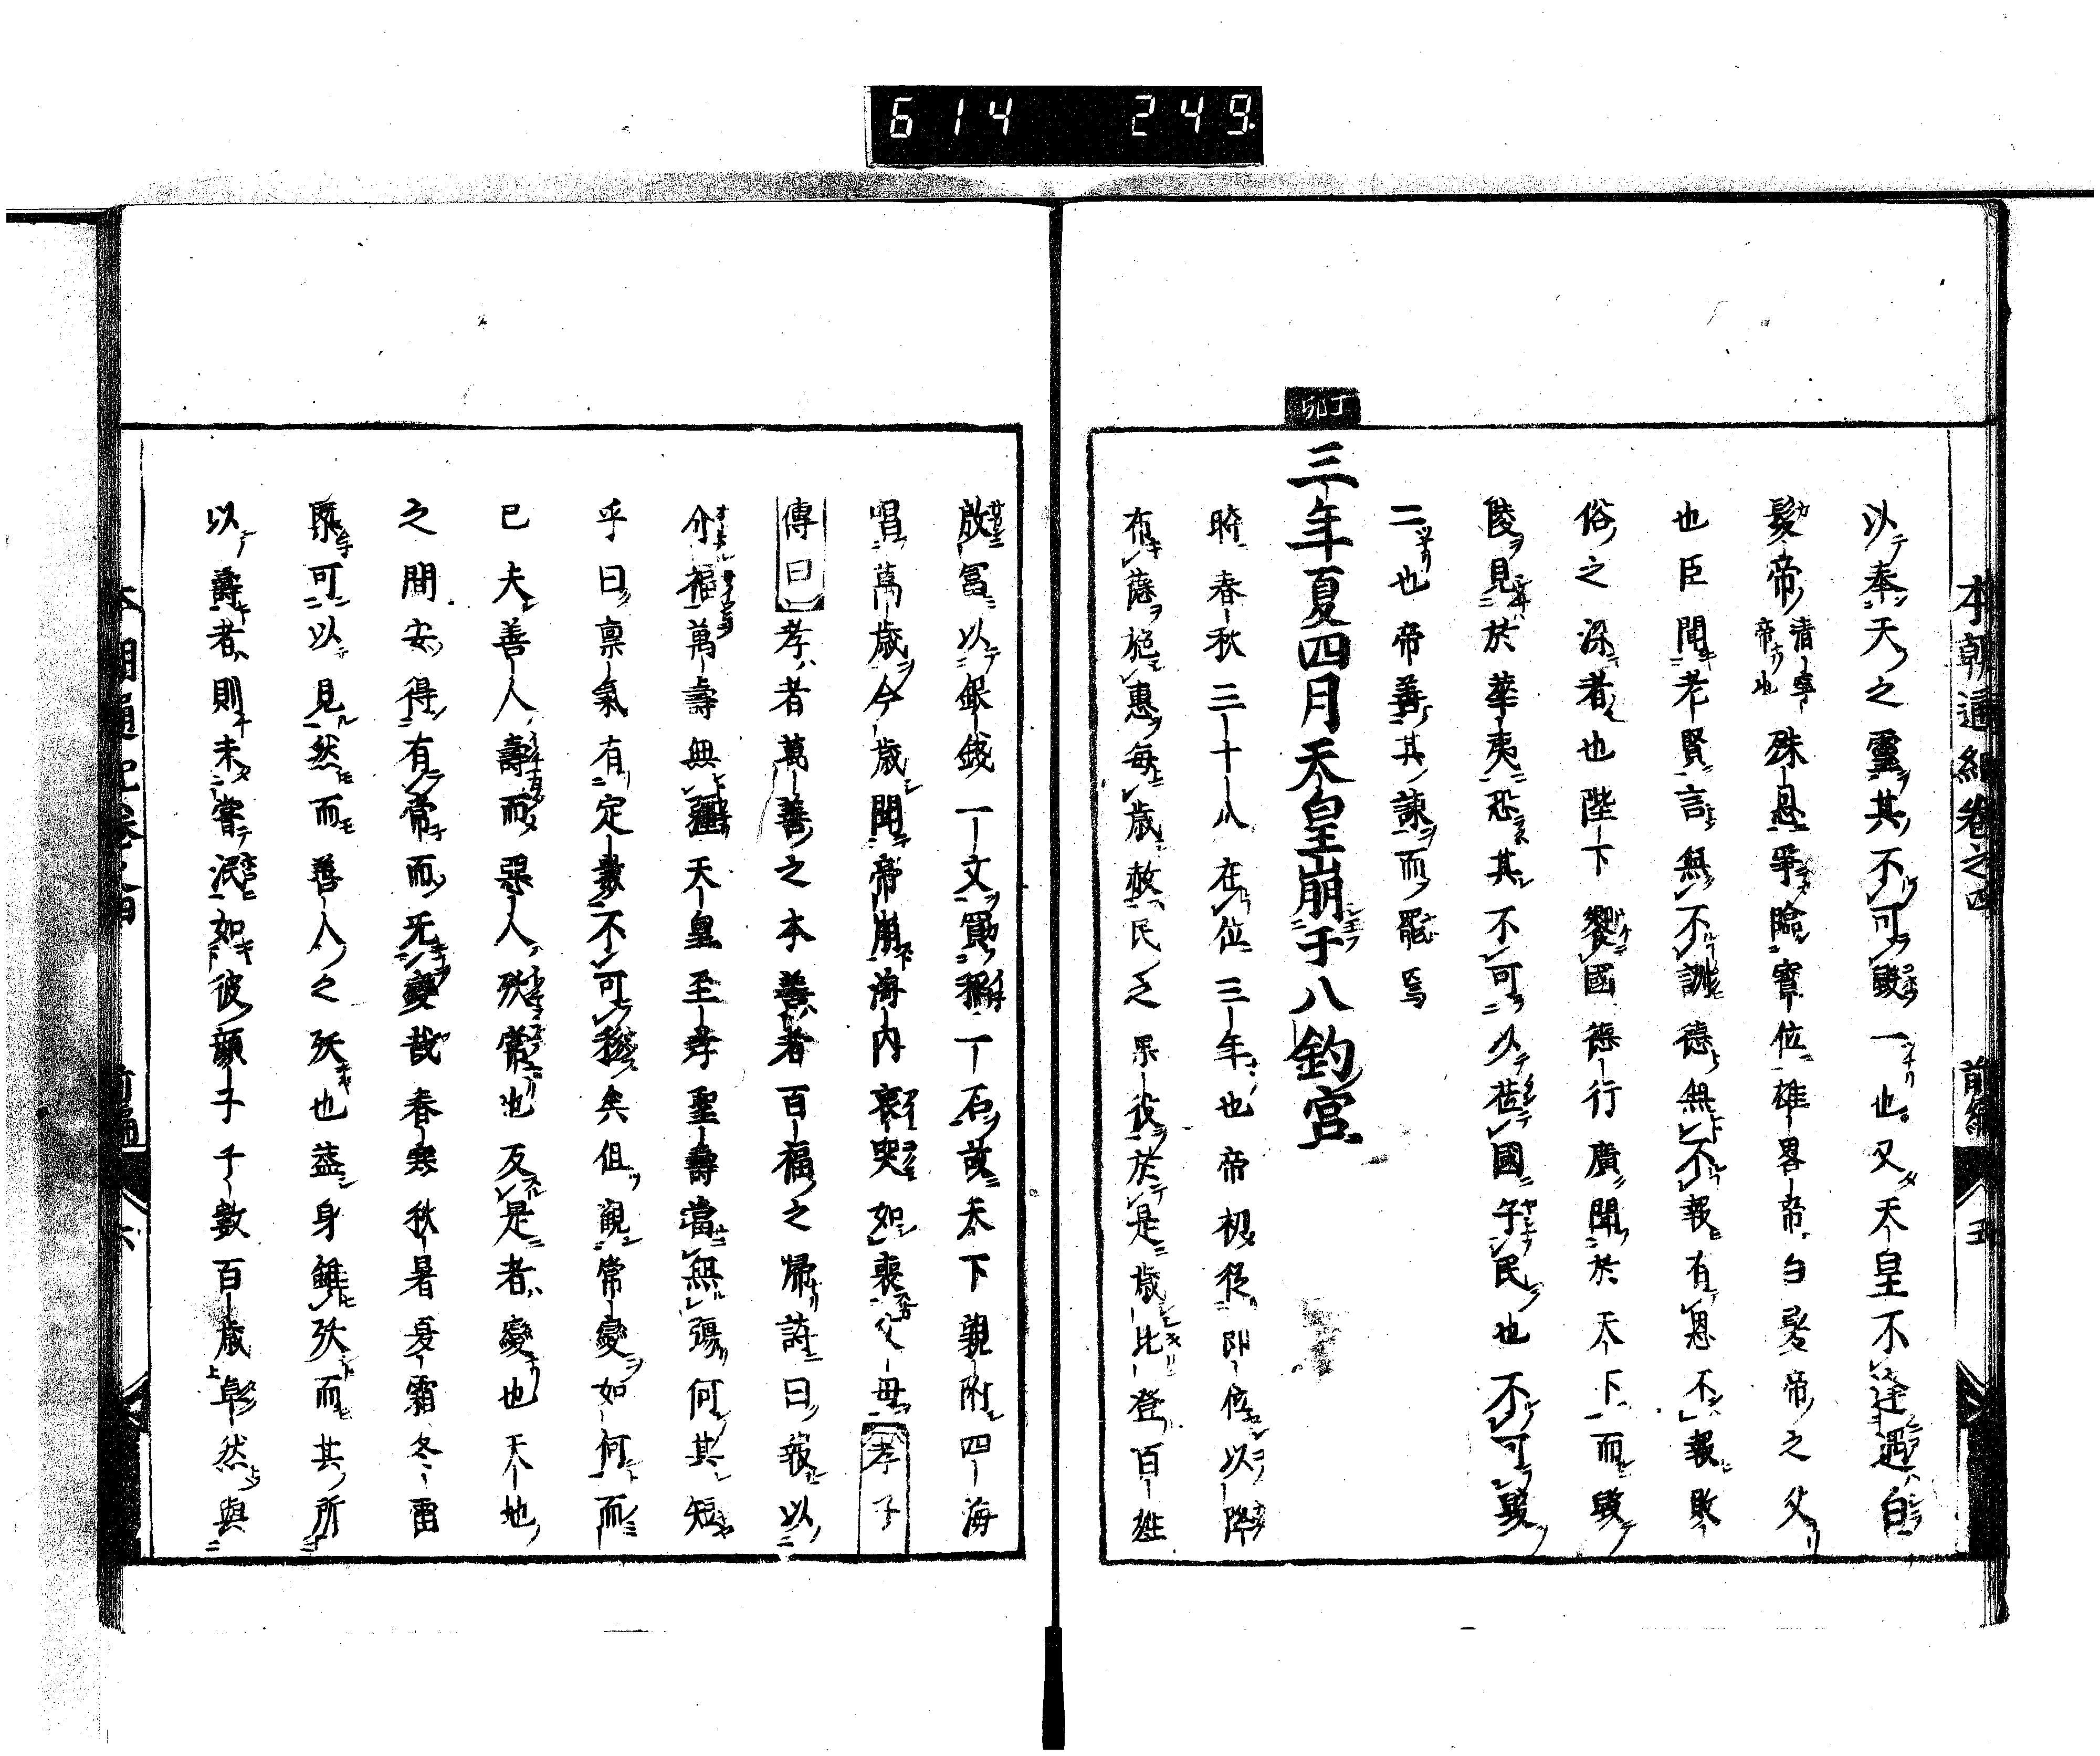 614 249
本朝通紀卷之四 前編 五
以奉天之靈其不可毀一也又天皇不逢遇白
髮帝清寧帝也殊恩爭臨寶位雄畧帝白髮帝之父
也臣聞老賢言無不訓德無不報有恩不報敗
俗之深者也陛下饗國德行廣聞於天下而毀
陵見於華夷恐其不可以莅國子民也不可毀
二也帝善其諫而罷焉
丁卯
三年夏四月天皇崩于八釣宮
時春秋三十八在位三年也帝初從即位以降
布德施惠每歲救民之果彼於是歲比登百姓
殷富以銀錢一文買稻一石故天下親附四海
唱萬歲今歲聞帝崩海內哀哭如喪父母孝子
傳曰孝者萬善之本善者百福之歸詩曰報以
介福萬壽無疆天皇至孝聖壽當無彊何其短
乎曰稟氣有定數不可移矣但觀常變如何而
已夫善人壽而惡人殀常也反是者變也天地
之間安得有常而无變哉春寒秋暑夏霜冬雷
可以見然而善人之殀也蓋身雖殀而其所
以壽者則未嘗泯如彼顏子千數百歲卓然與
本朝通紀卷之四 前編 六